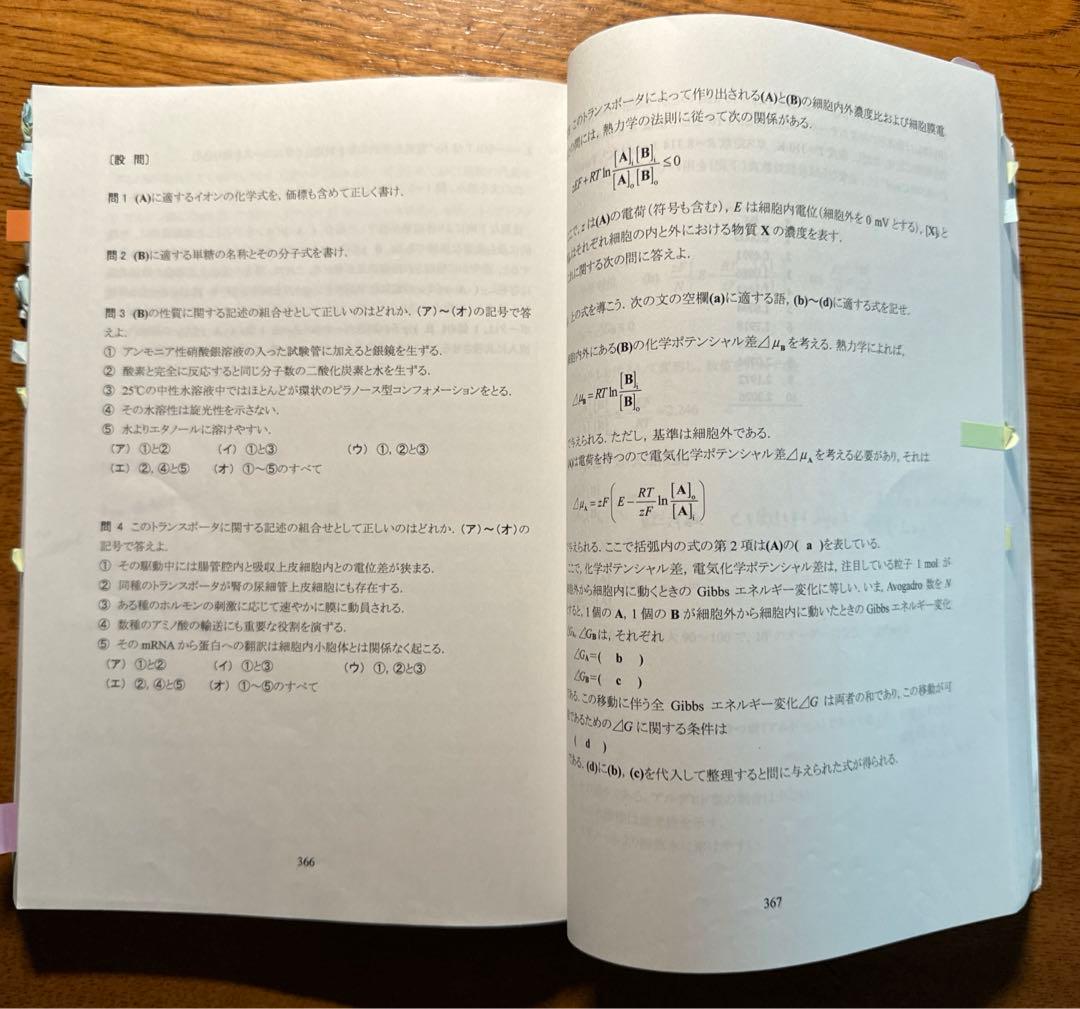 〔設 問〕
問1 (A)に適するイオンの化学式を, 価標も含めて正しく書け.
問2 (B)に適する単糖の名称とその分子式を書け.
問3 (B)の性質に関する記述の組合せとして正しいのはどれか. (ア)～(オ)の記号で答
えよ.
① アンモニア性硝酸銀溶液の入った試験管に加えると銀鏡を生ずる.
② 酸素と完全に反応すると同じ分子数の二酸化炭素と水を生ずる.
③ 25℃の中性水溶液中ではほとんどが環状のピラノース型コンフォメーションをとる.
④ その水溶性は旋光性を示さない.
⑤ 水よりエタノールに溶けやすい.
(ア) ①と② (イ) ①と③ (ウ) ①, ②と③
(エ) ②, ④と⑤ (オ) ①～⑤のすべて
問4 このトランスポータに関する記述の組合せとして正しいのはどれか. (ア)～(オ)の
記号で答えよ.
① その駆動中には腸管腔内と吸収上皮細胞内との電位差が狭まる.
② 同種のトランスポータが腎の尿細管上皮細胞にも存在する.
③ ある種のホルモンの刺激に応じて速やかに膜に動員される.
④ 数種のアミノ酸の輸送にも重要な役割を演ずる.
⑤ そのmRNAから蛋白への翻訳は細胞内小胞体とは関係なく起こる.
(ア) ①と② (イ) ①と③ (ウ) ①, ②と③
(エ) ②, ④と⑤ (オ) ①～⑤のすべて
366
このトランスポータによって作り出される(A)と(B)の細胞内外濃度比および細胞膜電
の間には, 熱力学の法則に従って次の関係がある.
zEF+RT ln [A]i[B]i/[A]o[B]o ≤0
で, zは(A)の電荷(符号も含む), Eは細胞内電位(細胞外を0 mVとする), [X]iと
はそれぞれ細胞の内と外における物質Xの濃度を表す.
れに関する次の問に答えよ.
上の式を導こう. 次の文の空欄(a)に適する語, (b)～(d)に適する式を記せ.
胞内外にある(B)の化学ポテンシャル差⊿μBを考える. 熱力学によれば,
⊿μB=RT ln [B]i/[B]o
で与えられる. ただし, 基準は細胞外である.
は電荷を持つので電気化学ポテンシャル差⊿μAを考える必要があり, それは
⊿μA=zF(E−RT/zF ln [A]o/[A]i)
与えられる. ここで括弧内の式の第2項は(A)の( a )を表している.
こで, 化学ポテンシャル差, 電気化学ポテンシャル差は, 注目している粒子1 molが
胞外から細胞内に動くときのGibbsエネルギー変化に等しい. いま, Avogadro数をN
すると, 1個のA, 1個のBが細胞外から細胞内に動いたときのGibbsエネルギー変化
⊿GA, ⊿GBは, それぞれ
⊿GA=( b )
⊿GB=( c )
である. この移動に伴う全Gibbsエネルギー変化⊿Gは両者の和であり, この移動が可
であるための⊿Gに関する条件は
( d )
である. (d)に(b), (c)を代入して整理すると問に与えられた式が得られる.
367